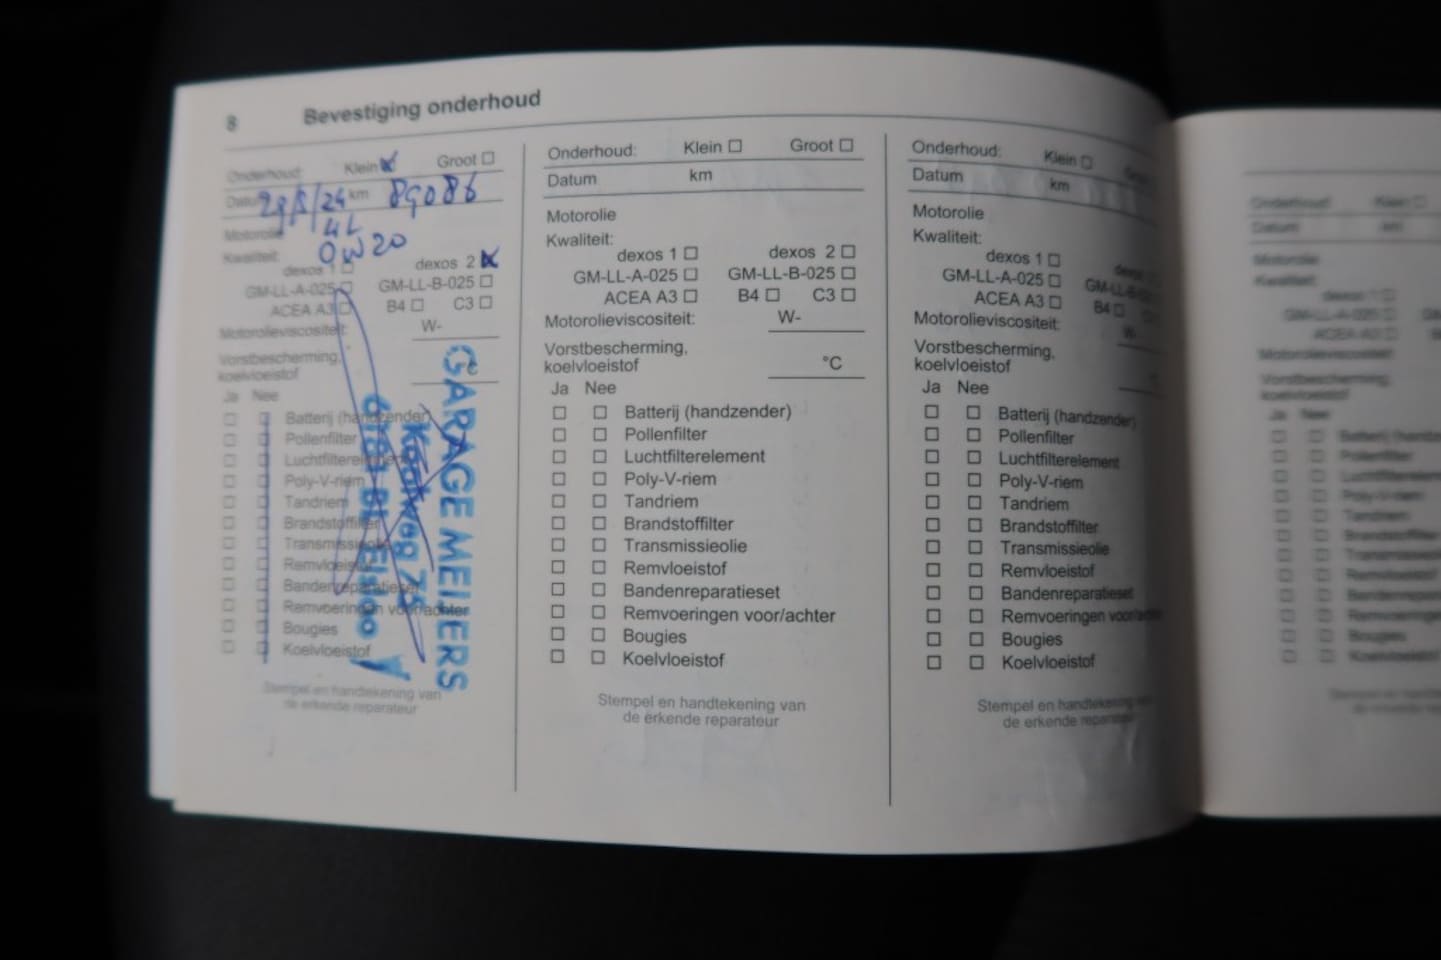 8 Bevestiging onderhoud
Onderhoud: Klein Groot
Datum km 89086
4L
Motorolie
0W20
Kwaliteit:
dexos 1 dexos 2
GM-LL-A-025 GM-LL-B-025
ACEA A3 B4 C3
Motorolieviscositeit: W-
Vorstbescherming,
koelvloeistof °C
Ja Nee
Batterij (handzender)
Pollenfilter
Luchtfilterelement
Poly-V-riem
Tandriem
Brandstoffilter
Transmissieolie
Remvloeistof
Bandenreparatieset
Remvoeringen voor/achter
Bougies
Koelvloeistof
GARAGE MEINERS
Stempel en handtekening van
de erkende reparateur
Onderhoud: Klein Groot
Datum km
Motorolie
Kwaliteit:
dexos 1 dexos 2
GM-LL-A-025 GM-LL-B-025
ACEA A3 B4 C3
Motorolieviscositeit: W-
Vorstbescherming,
koelvloeistof °C
Ja Nee
Batterij (handzender)
Pollenfilter
Luchtfilterelement
Poly-V-riem
Tandriem
Brandstoffilter
Transmissieolie
Remvloeistof
Bandenreparatieset
Remvoeringen voor/achter
Bougies
Koelvloeistof
Stempel en handtekening van
de erkende reparateur
Onderhoud: Klein
Datum km
Motorolie
Kwaliteit:
dexos 1 dexos
GM-LL-A-025 GM-LL-B-
ACEA A3 B4
Motorolieviscositeit: W-
Vorstbescherming,
koelvloeistof
Ja Nee
Batterij (handzender)
Pollenfilter
Luchtfilterelement
Poly-V-riem
Tandriem
Brandstoffilter
Transmissieolie
Remvloeistof
Bandenreparatieset
Remvoeringen voor/achter
Bougies
Koelvloeistof
Stempel en handtekening van
de erkende reparateur
Onderhoud: Klein
Datum km
Motorolie
Kwaliteit:
dexos 1
GM-LL-A-025
ACEA A3
Motorolieviscositeit:
Vorstbescherming,
koelvloeistof
Ja Nee